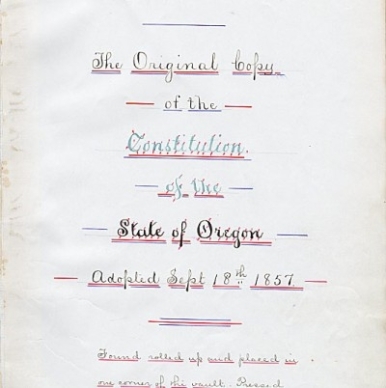 The Original Copy
of the
Constitution.
of the
State of Oregon
Adopted Sept 18th 1857
Found rolled up and placed in
one corner of the vault. Pressed